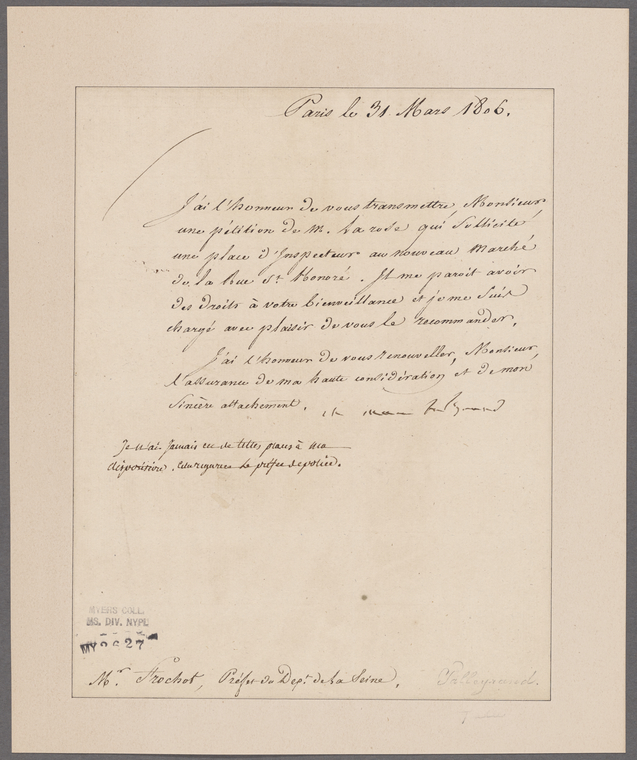 Paris le 31 Mars 1806.
J'ai l'honneur de vous transmettre Monsieur
une pétition de M. La rose qui Sollicite
une place d'Inspecteur au nouveau Marché
de la Rue St. Honoré. Il me paroit avoir
des droits à votre bienveillance et je me Suis
chargé avec plaisir de vous le recommander.
J'ai l'honneur de vous renouveller, Monsieur,
l'assurance de ma haute considération et de mon
Sincère attachement.
Je n'ai jamais eu de telles places à ma
disposition. le préfet de police.
MYERS COLL.
MS. DIV. NYPL
MY 2627
Mr. Frochot, Préfet du Dept. de la Seine.
Talleyrand.